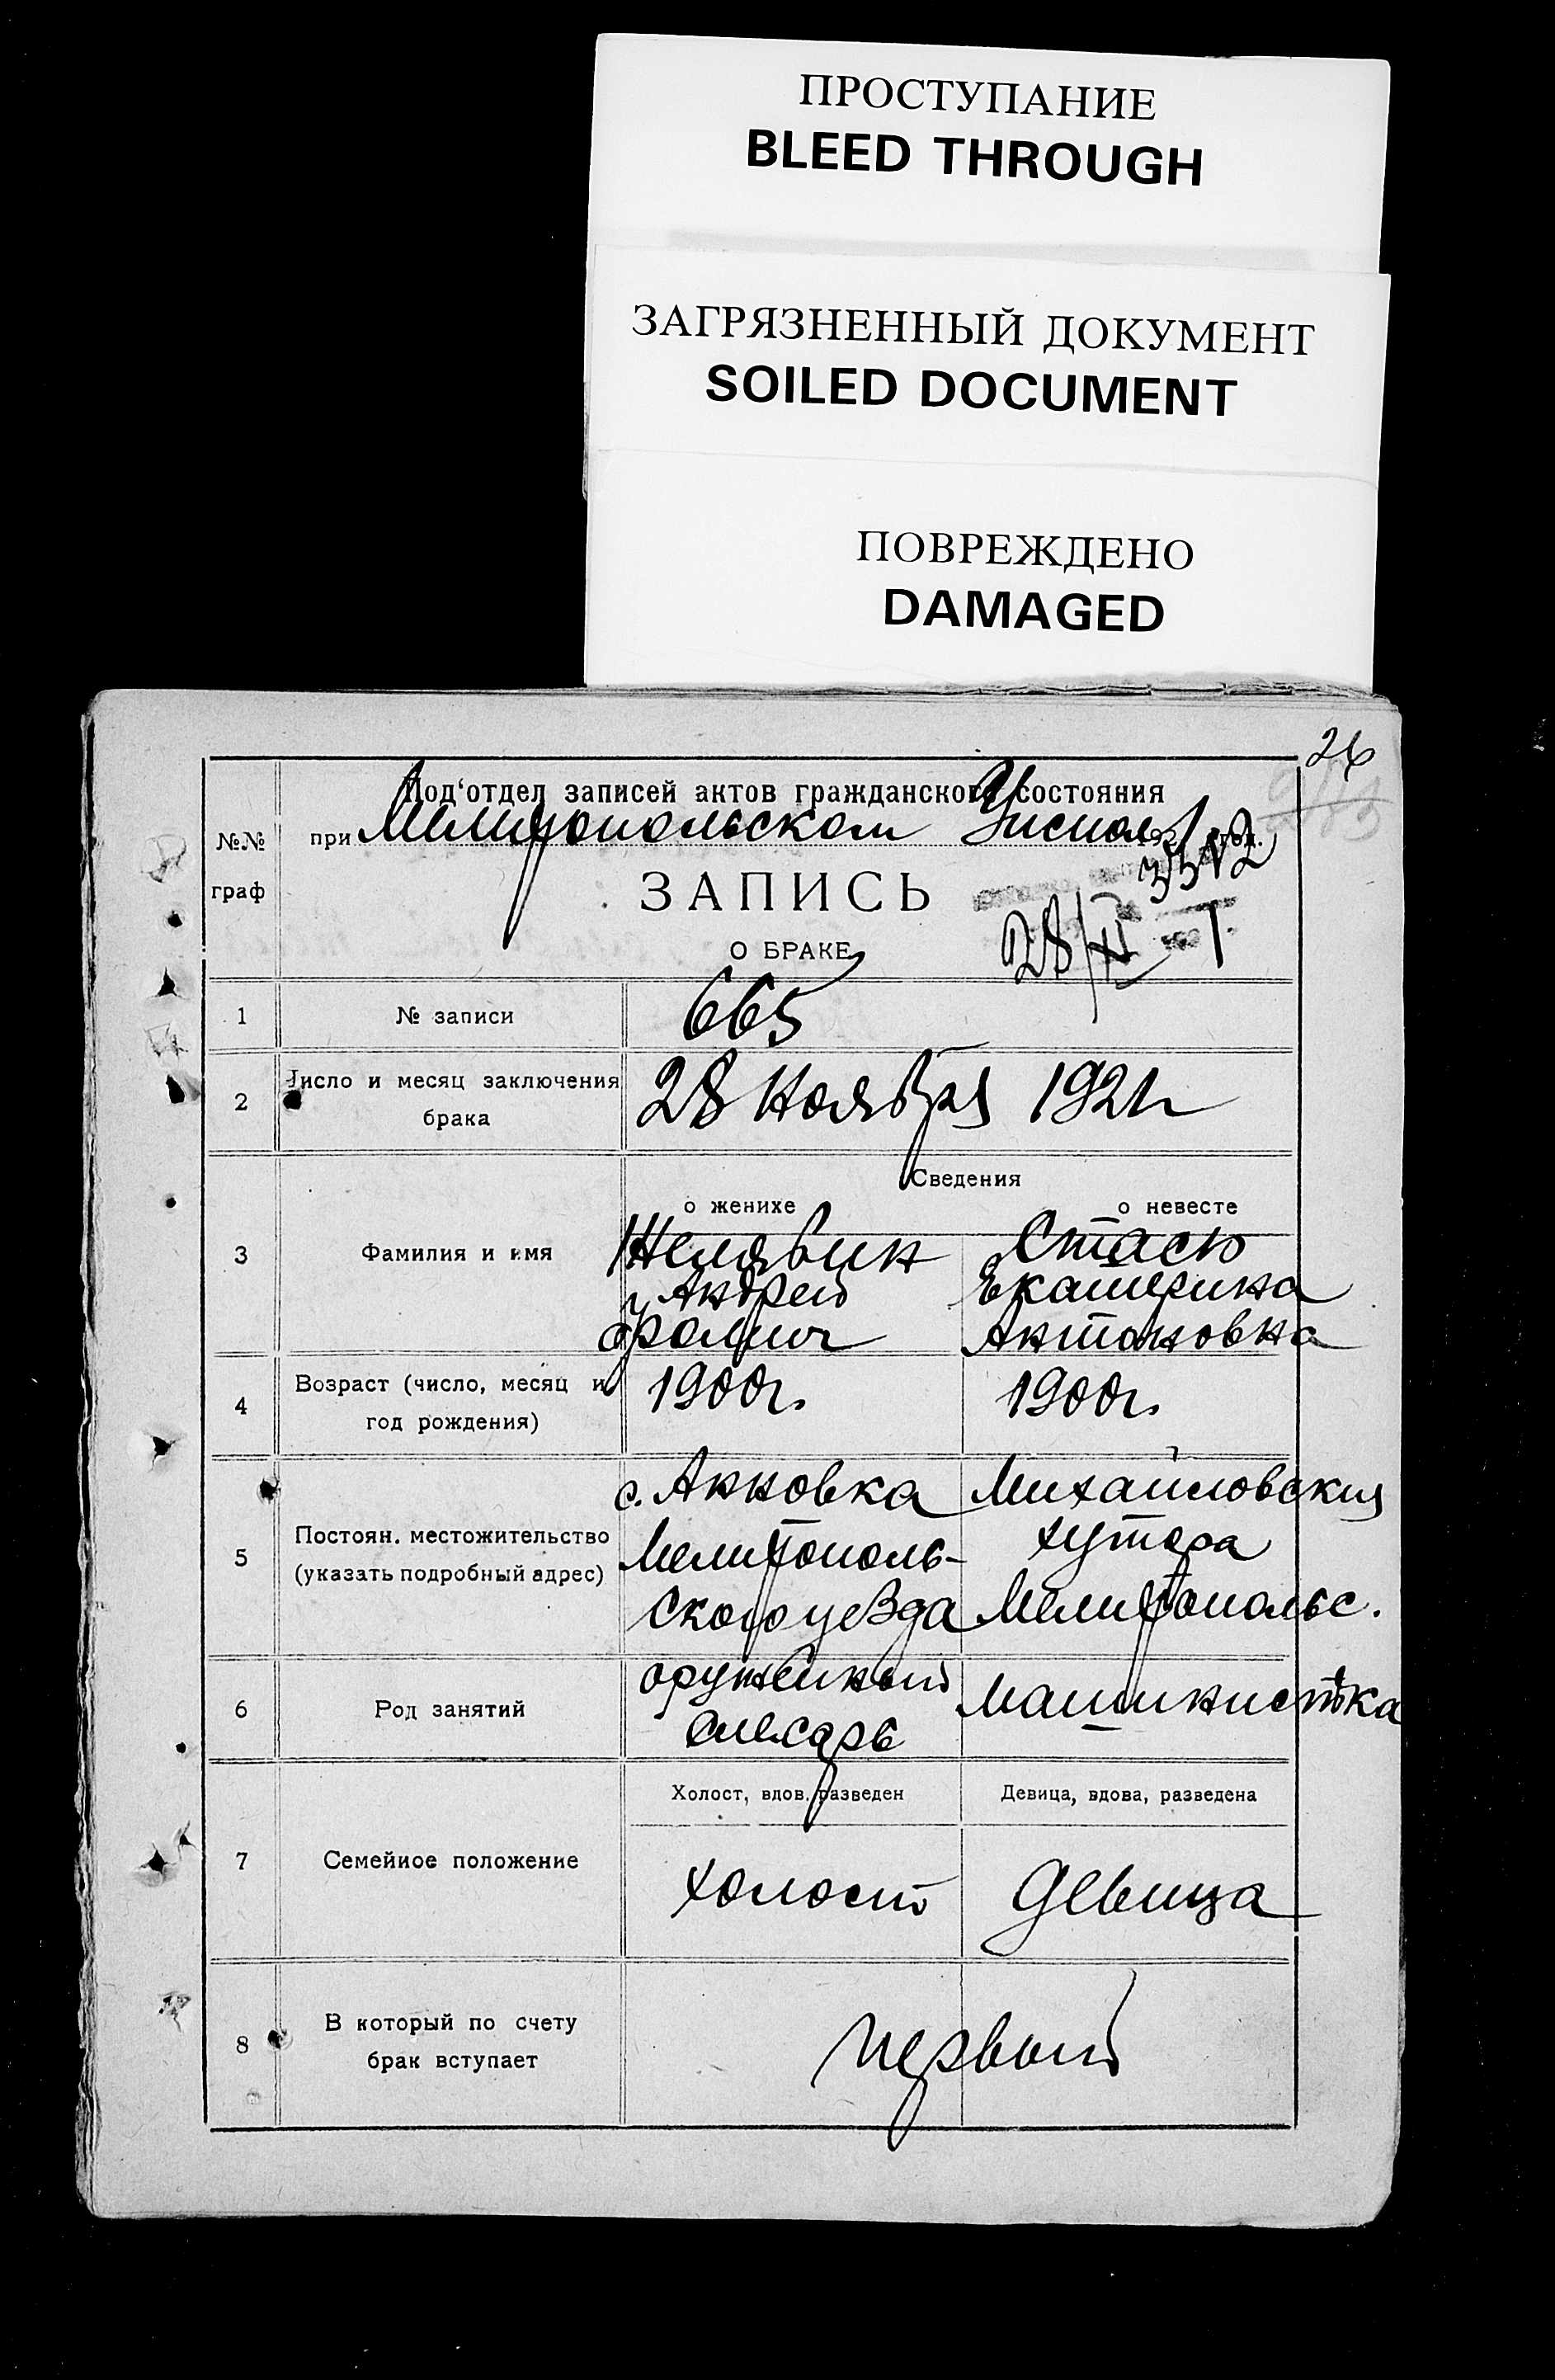 ПРОСТУПАНИЕ
BLEED THROUGH
ЗАГРЯЗНЕННЫЙ ДОКУМЕНТ
SOILED DOCUMENT
ПОВРЕЖДЕНО
DAMAGED
26
№№ граф
Под'отдел записей актов гражданского состояния
при Мелитопольском Уисполк
ЗАПИСЬ
О БРАКЕ
28/XI
1 № записи 665
2 Число и месяц заключения брака 28 Ноября 1921 г
Сведения
о женихе о невесте
3 Фамилия и имя
Желябин Стасю
Андрей Екатерина
Фомич Антоновна
4 Возраст (число, месяц и год рождения) 1900г. 1900г.
5 Постоян. местожительство (указать подробный адрес)
с. Анновка Михайловския
Мелитополь- хутора
ского уезда Мелитопольс.
6 Род занятий
оружейный Машинистка
слесарь
Холост, вдов. разведен Девица, вдова, разведена
7 Семейное положение холост девица
8 В который по счету брак вступает первый